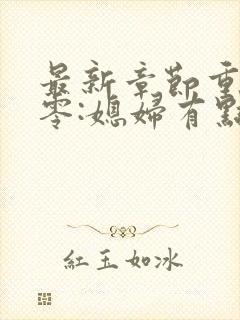 最新章節重
零:媳婦有點
紅玉如冰